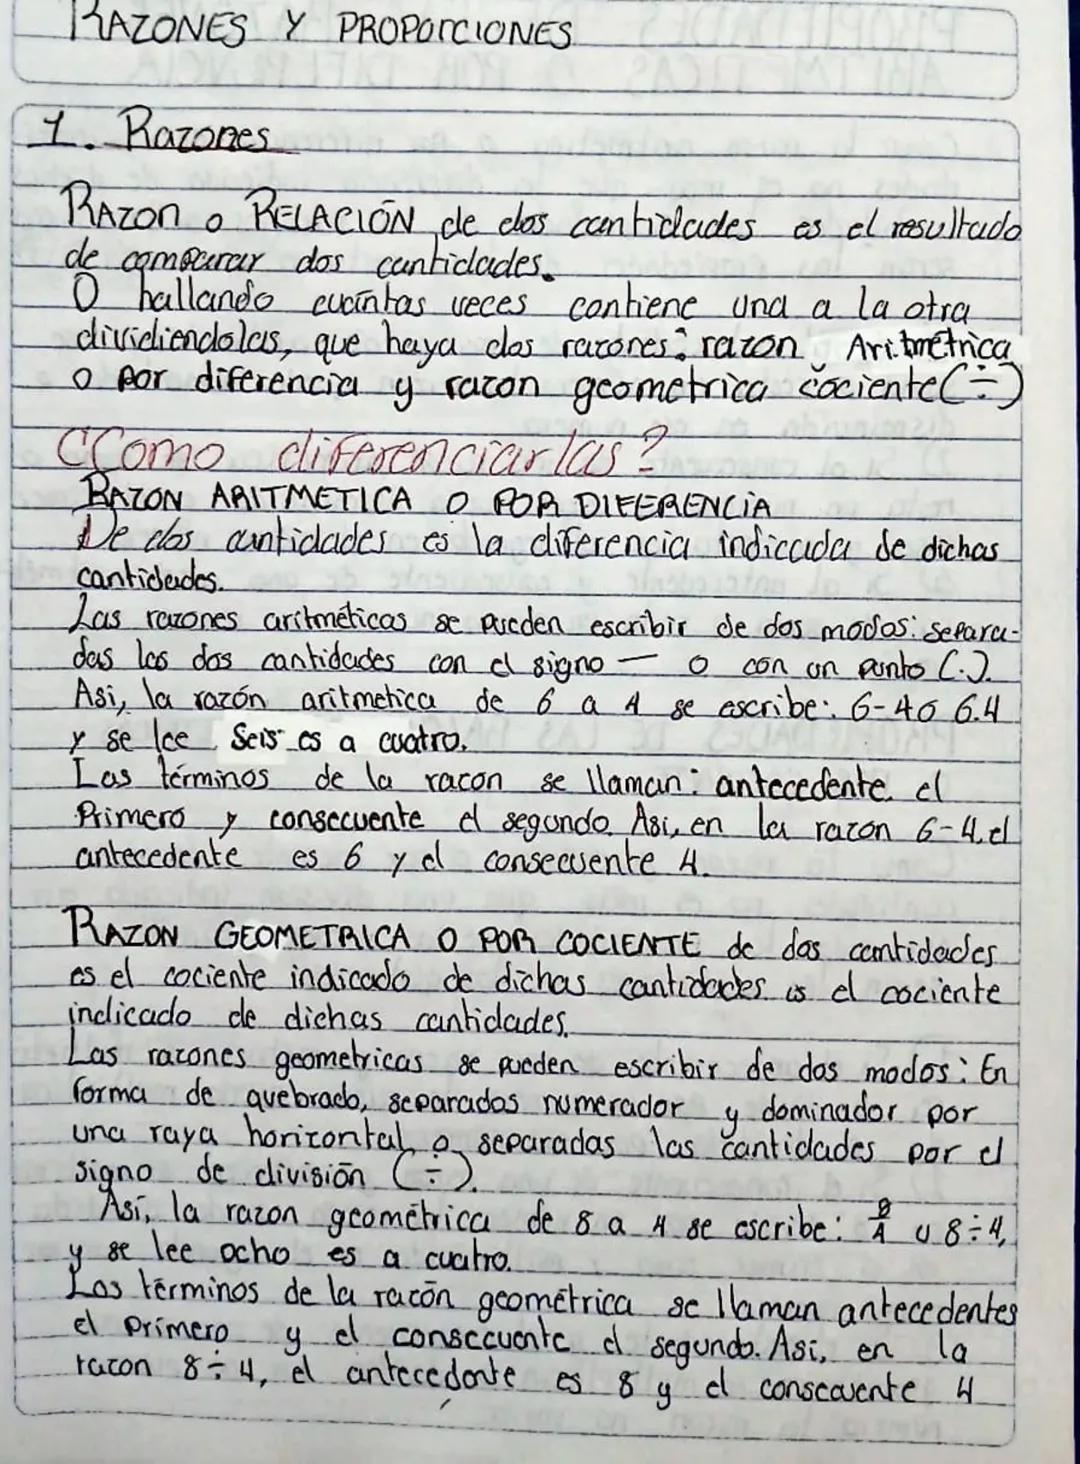 RAZONES Y PROPORCIONES
1. Razones
RAZON o RELACIÓN de dos cantidades es el resultado
de comparar dos cantidades.
O hallando cuántas veces contiene una a la otra
dividiendolas, que haya dos razones: razon Aritmétrica
o por diferencia y razon geometrica cociente (÷)
¿Como diferenciarlas?
RAZON ARITMETICA O POR DIFERENCIA
De dos cantidades es la diferencia indicada de dichas
cantidades.
Las razones aritméticas se pueden escribir de dos modos: separa-
das las dos cantidades con el signo — o con un punto (.).
Asi, la razón aritmetica de 6 a 4 se escribe: 6-4 ó 6.4
y se lee Seis es a cuatro.
Los términos de la razon se llaman: antecedente. el
Primero y consecuente el segundo. Asi, en la razon 6-4. el
antecedente es 6 y el consecuente 4.
RAZON GEOMETRICA O POR COCIENTE de dos cantidades
es el cociente indicado de dichas cantidades is el cociente
indicado de dichas cantidades.
Las razones geometricas se pueden escribir de dos modos: En
forma de quebrado, separados numerador y dominador por
una raya horizontal o separadas las cantidades por el
signo de división (÷).
Así, la razon geométrica de 8 a 4 se escribe: 8/4 u 8÷4,
y se lee ocho es a cuatro.
Los términos de la razón geométrica se llaman antecedentes
el primero y el consecuente el segundo. Asi, en la
razon 8÷4, el antecedente es 8 y el consecuente 4